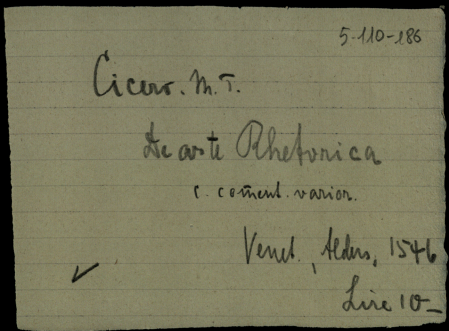 5-110-186
Cicero. M. T.
De arte Rhetorica
c. com̄ent. varior.
Venet., Aldus, 1546
Lire 10-